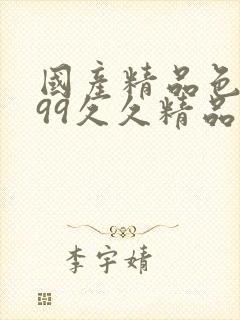 國產精品色
99久久精品
李宇婧